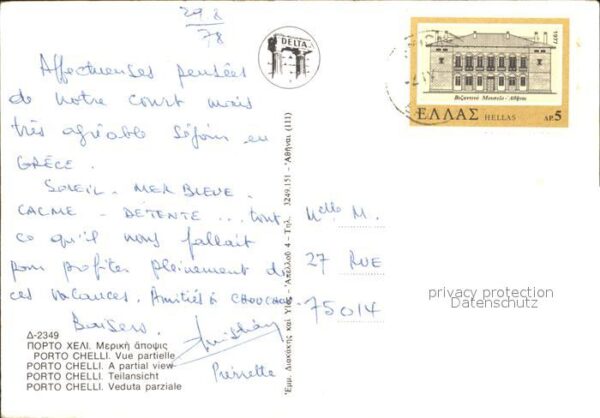 29.8
78
Affectueuses pensées
de notre court mais
très agréable séjour en
GRÈCE.
SOLEIL - MER BLEUE -
CALME - DÉTENTE ... tout
ce qu'il nous fallait
pour profiter pleinement de
ces vacances. Amitiés à CHOUCHOU
Baisers.
Christian
Pierrette
Δ-2349
ΠΟΡΤΟ ΧΕΛΙ. Μερική άποψις
PORTO CHELLI. Vue partielle
PORTO CHELLI. A partial view
PORTO CHELLI. Teilansicht
PORTO CHELLI. Veduta parziale
DELTA
Εμμ. Διακάκης και Υιός - Απέλλου 4 - Τηλ. 3249.151 - Αθήναι (111)
1977
Βυζαντινό Μουσείο - Αθήναι
ΕΛΛΑΣ HELLAS ΔΡ. 5
Melle M.
27 RUE
75014
privacy protection
Datenschutz